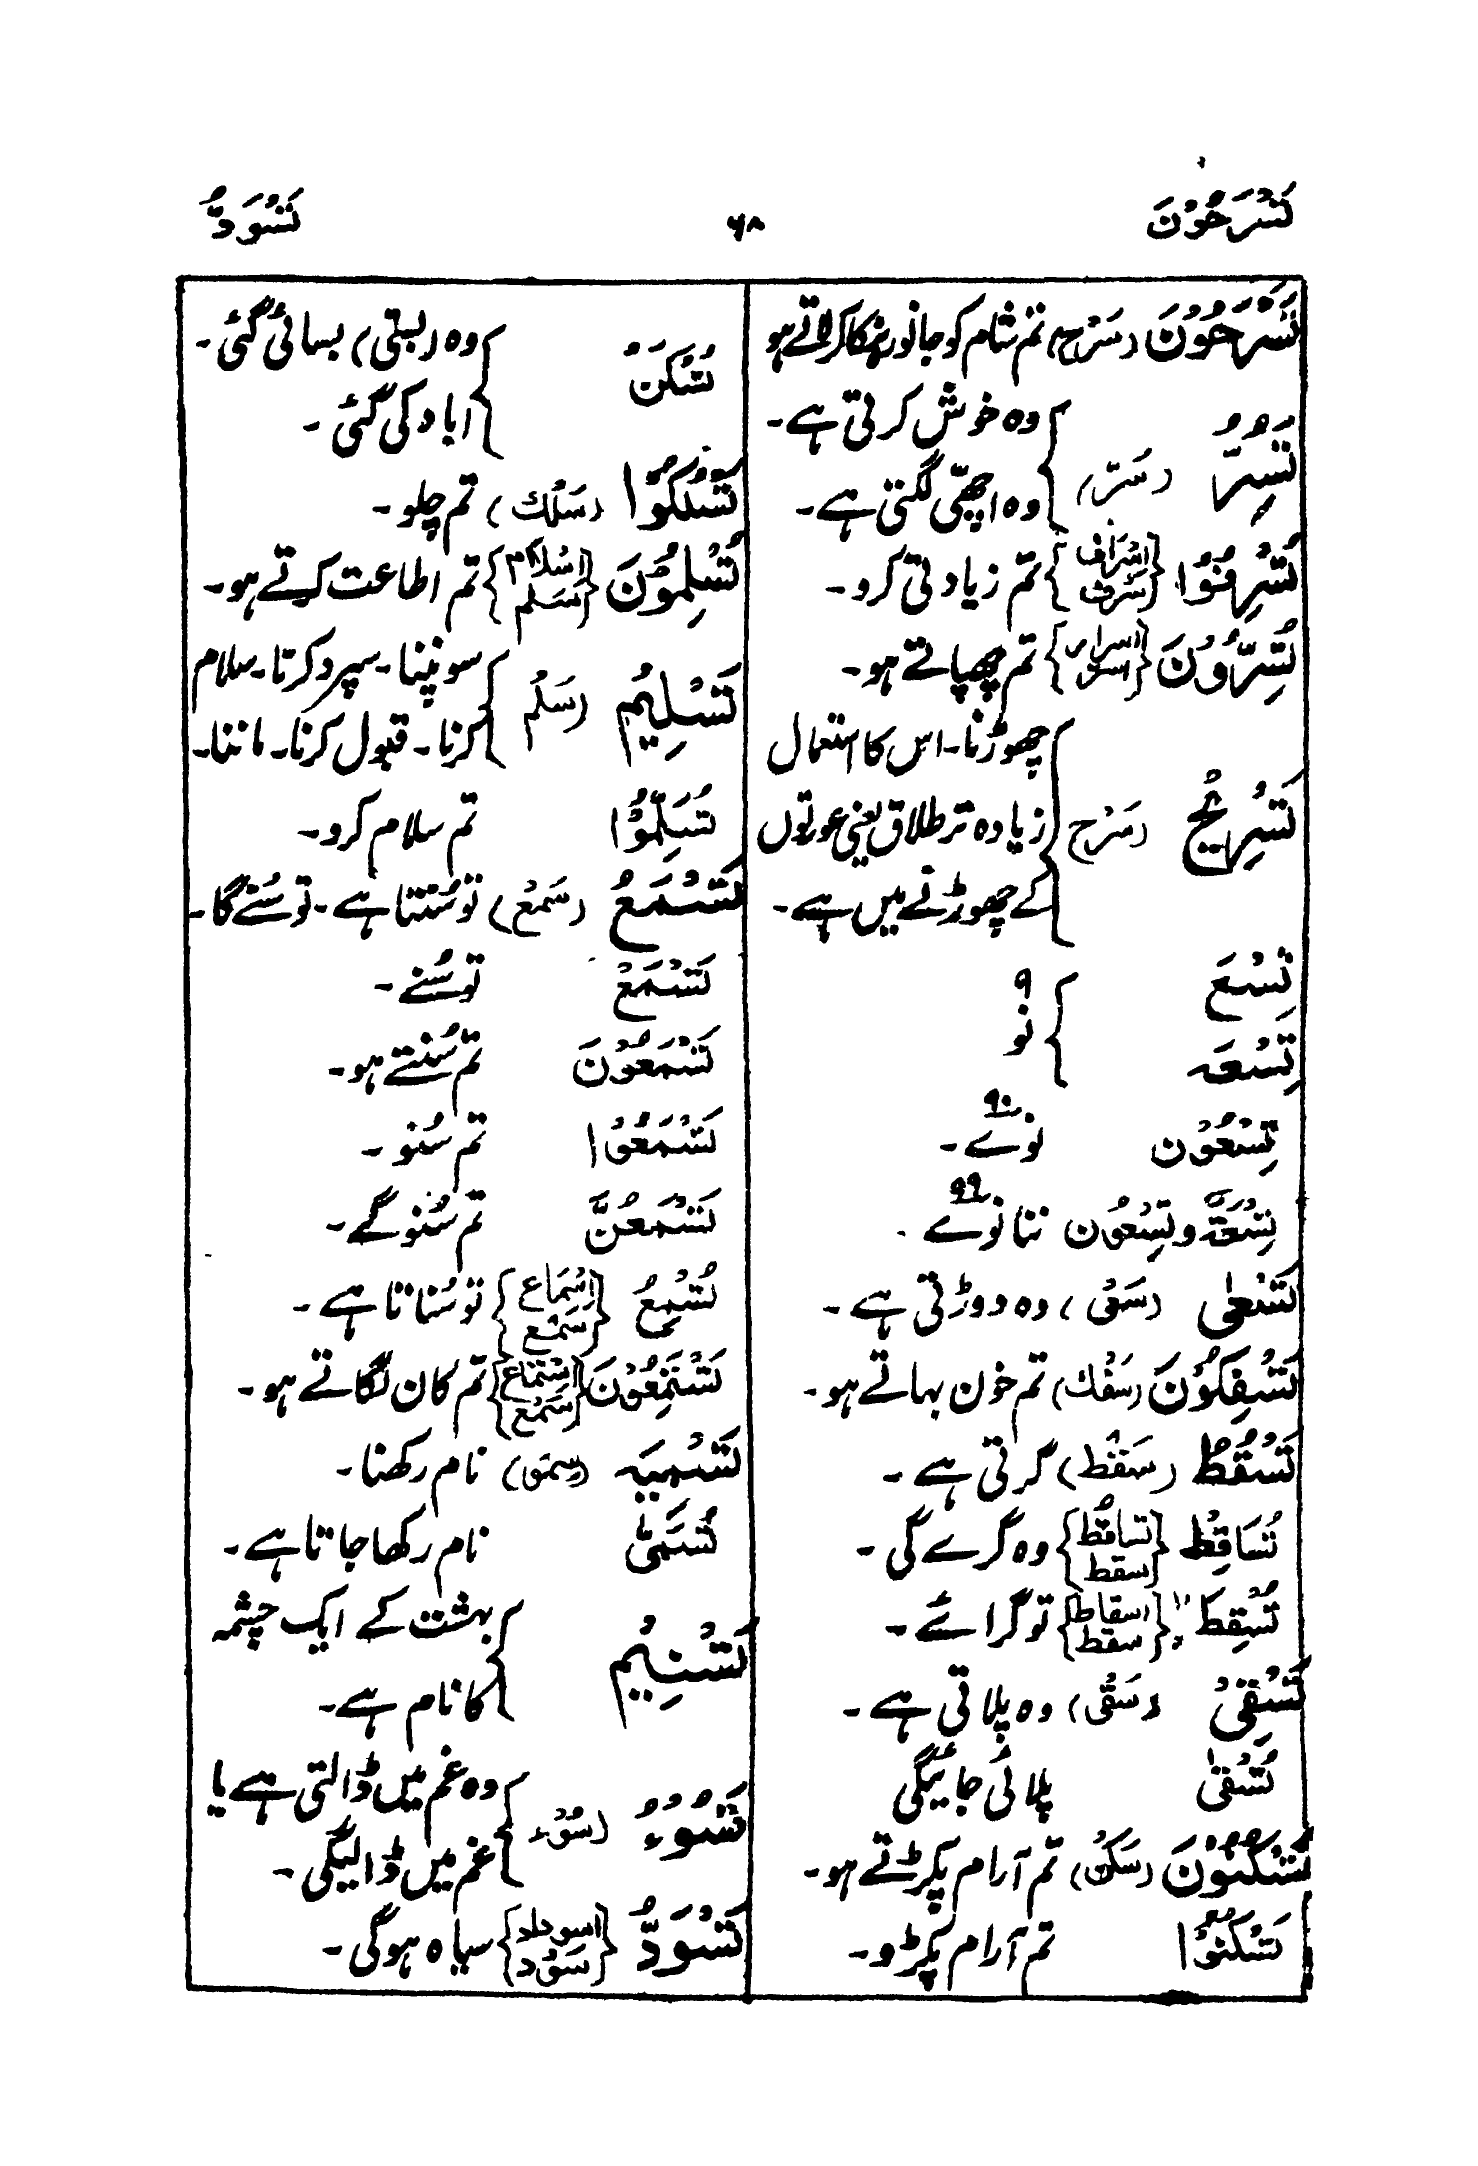 تَسْرَحُوْنَ ۶۸ تَسْوَدُّ
تَسْرَحُوْنَ (سَرْح) تم شام کو جانور ہنکا کر لاتے ہو
تَسُرُّ (سَرّ) وہ خوش کرتی ہے۔
وہ اچھی لگتی ہے۔
تُسْرِفُوْا {اِسْرَاف سَرَف} تم زیادتی کرو۔
تُسِرُّوْنَ {اسرار سرر} تم چھپاتے ہو۔
چھوڑنا۔ اس کا استعمال
تَسْرِیْحٌ (سَرْح) زیادہ تر طلاق یعنی عورتوں
کے چھوڑنے میں ہے۔
تِسْعَ ۹
تِسْعَہ نو
تِسْعُوْن نوے۔ ۹۰
تِسْعَۃ و تِسْعُوْن ننانوے ۹۹
تَسْعٰی (سَعْی) وہ دوڑتی ہے۔
تَسْفِکُوْنَ (سَفْك) تم خون بہاتے ہو۔
تَسْقُطُ (سَقْط) گرتی ہے۔
تُسَاقِطْ {تساقط سقط} وہ گرے گی۔
تُسْقِطَ {اسقاط سقط} تو گرائے۔
تَسْقِیْ (سَقْی) وہ پلاتی ہے۔
تُسْقٰی پلائی جائیگی
تَسْکُنُوْنَ (سَکَن) تم آرام پکڑتے ہو۔
تَسْکُنُوْا تم آرام پکڑو۔
تُسْکَنْ وہ (بستی) بسائی گئی۔
اباد کی گئی۔
تَسْلُکُوْا (سَلُك) تم چلو۔
تُسْلِمُوْنَ {اِسْلَام سَلم} تم اطاعت کرتے ہو۔
تَسْلِیْم (سَلْم) سونپنا۔ سپرد کرنا۔ سلام
کرنا۔ قبول کرنا۔ ماننا۔
تُسَلِّمُوْا تم سلام کرو۔
تَسْمَعُ (سَمْع) تو سُنتا ہے۔ تو سُنے گا۔
تَسْمَعْ تو سُنے۔
تَسْمَعُوْنَ تم سُنتے ہو۔
تَسْمَعُوْا تم سُنو۔
تَسْمَعُنَّ تم سُنو گے۔
تُسْمِعُ {اِسْمَاع سَمْع} تو سُناتا ہے۔
تَسْتَمِعُوْنَ {اِسْتِمَاع سَمْع} تم کان لگاتے ہو۔
تَسْمِیَہ (سمو) نام رکھنا۔
تُسَمّٰی نام رکھا جاتا ہے۔
تَسْنِیْم بہشت کے ایک چشمہ
کا نام ہے۔
تَسُوْءُ (سُوْء) وہ غم میں ڈالتی ہے یا
غم میں ڈالیگی۔
تَسْوَدُّ {اسوداد سَوْد} سیاہ ہوگی۔